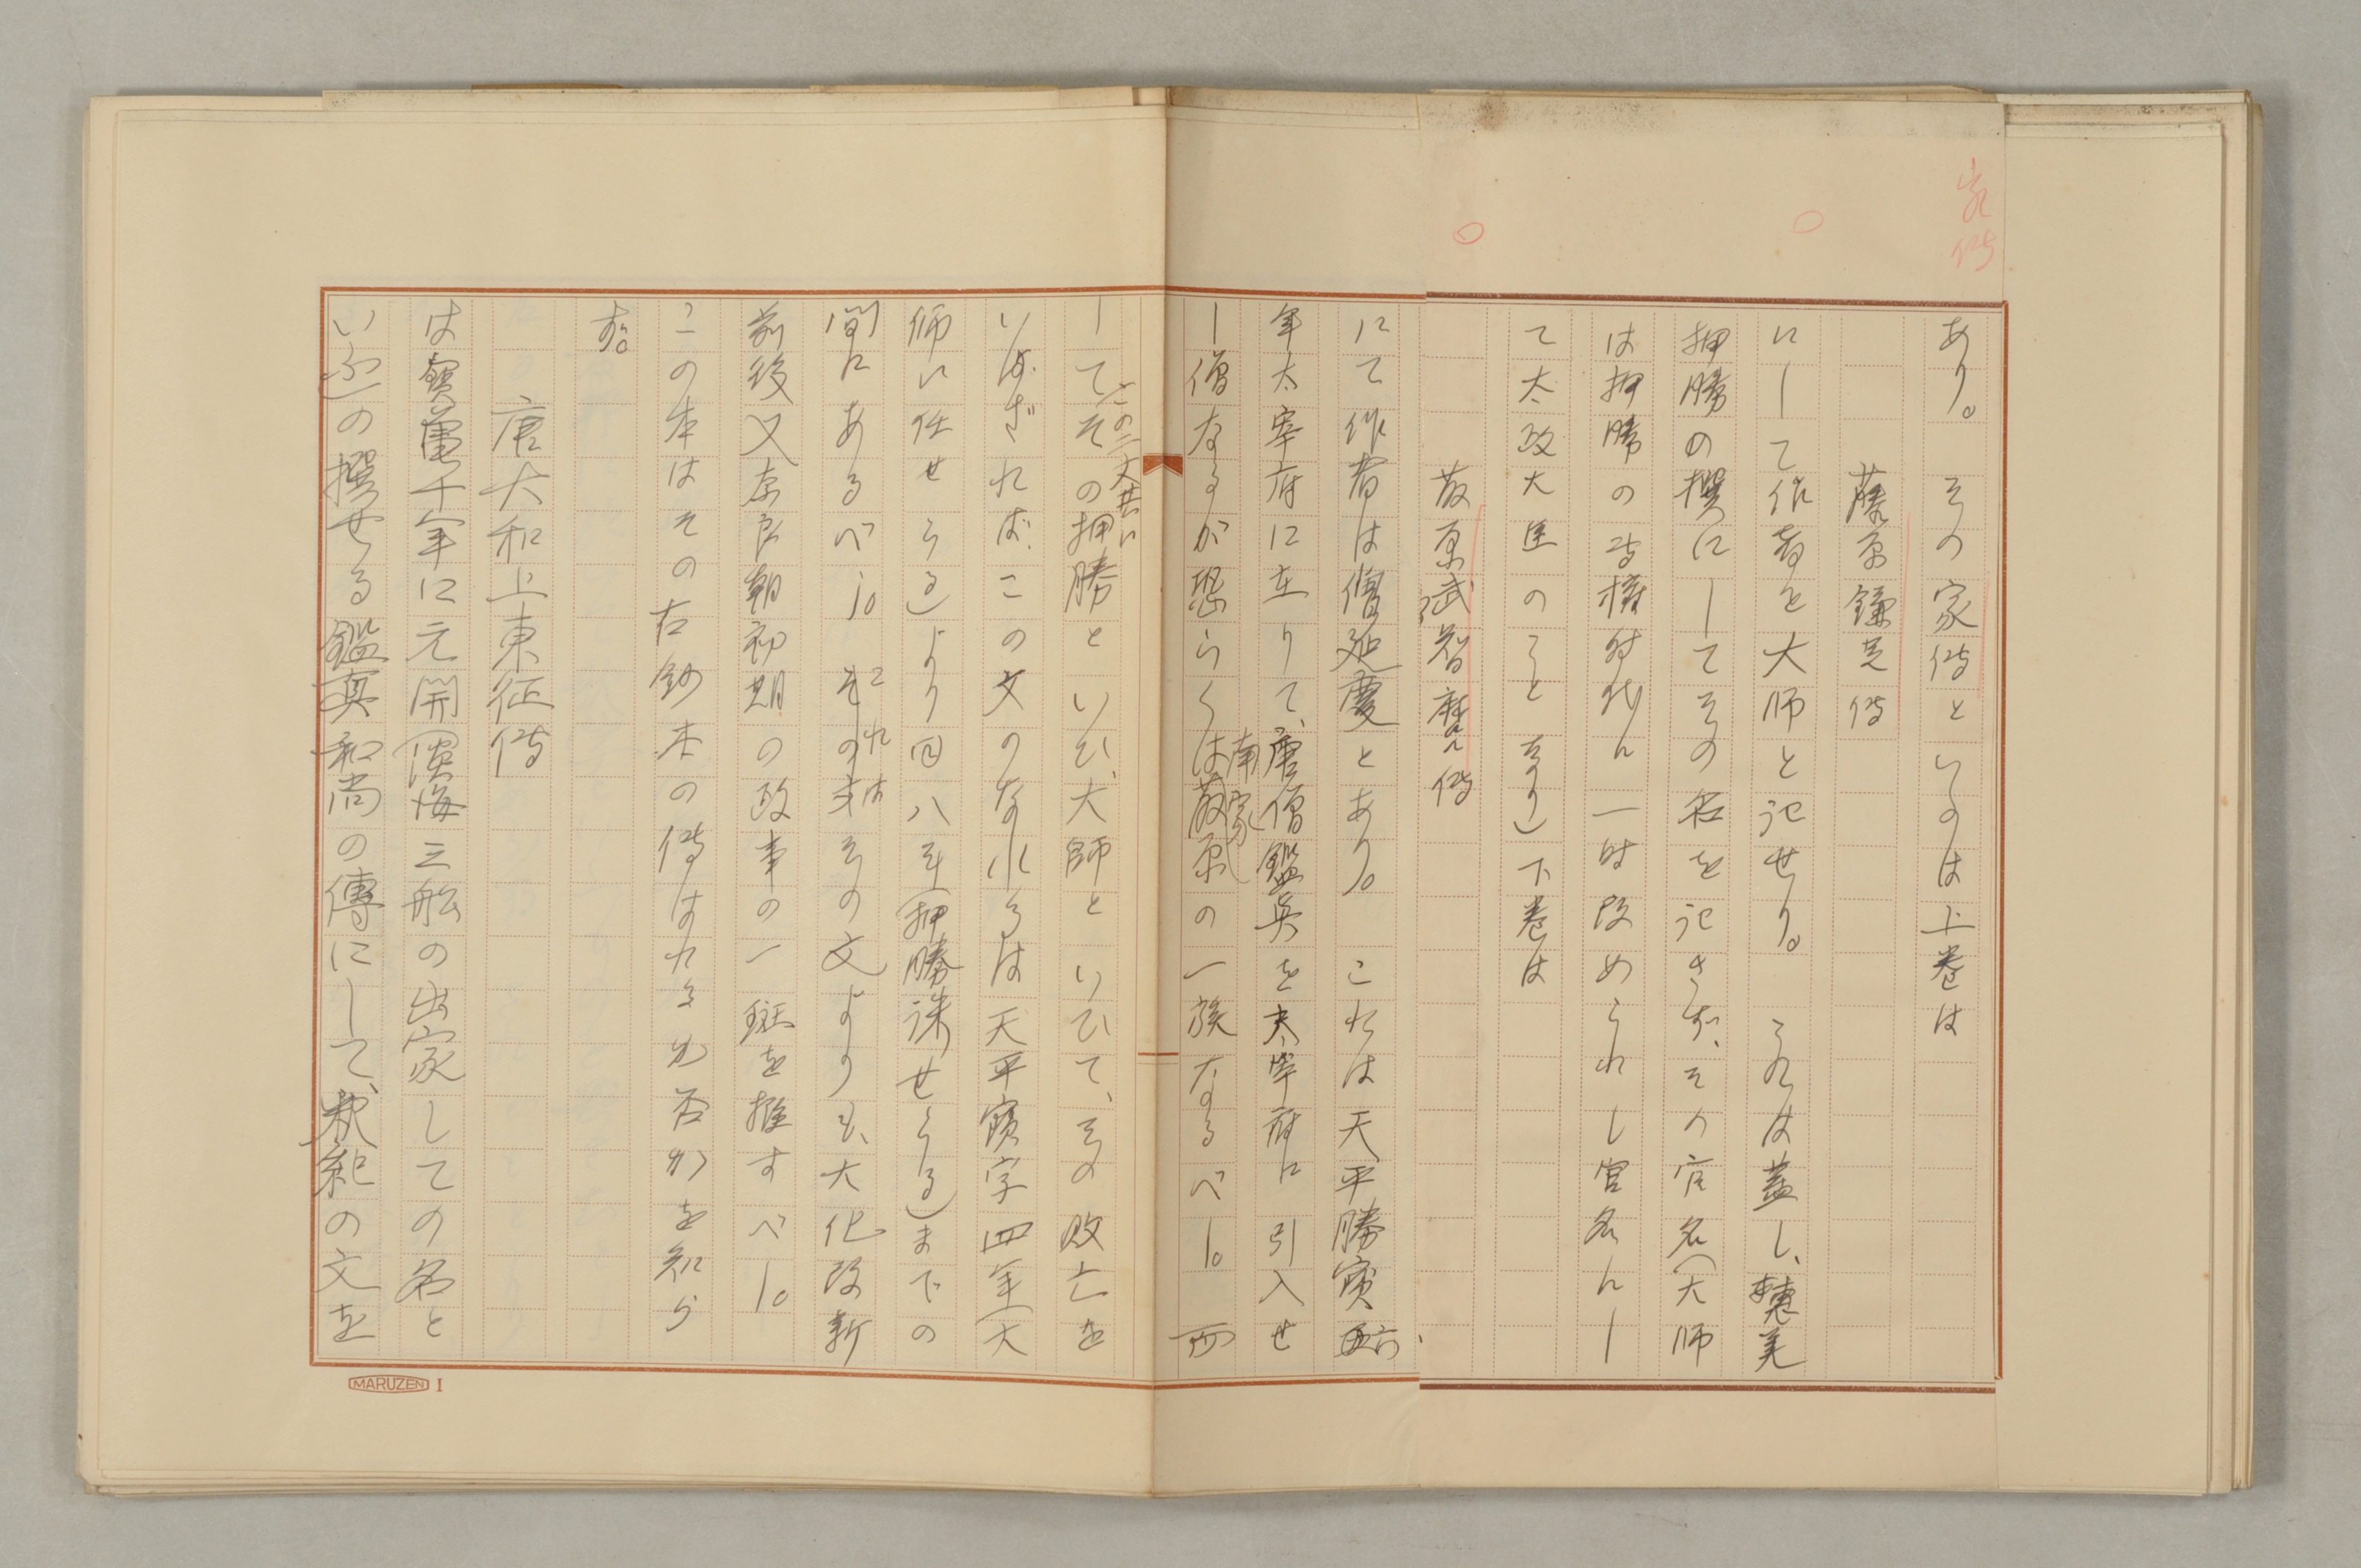 家傳
あり。その家傳といふのは上巻は
藤原鎌足傳
にして作者を大師と記せり。これは蓋し、恵美
押勝の撰にしてその名を記さず、その官名(大師
は押勝の専権時代に一時改められし官名にし
て太政大臣のことなり)下巻は
藤原武智麿傳
にて作者は僧延慶とあり。これは天平勝寶六
年太宰府に在りて、唐僧鑑真を太宰府に引入せ
し僧なるが恐らくは南家藤原の一族なるべし。而
してこの二文共にその押勝といひ、大師といひて、その敗亡を
いはざればこの文のなれるは天平寶字四年(大
師に任せらる)より同八年(押勝誅せらる)までの
間にあるべし。これはその文よりも、大化改新
前後又奈良朝初期の政事の一斑を推すべし。
この本はその古鈔本の傳はれるか否かを知ら
ず。
唐大和上東征傳
は寶亀十年に元開(淡海三船の出家しての名と
いふ)の撰せる鑑真和尚の傳にして、秋紀の文を
MARUZEN I